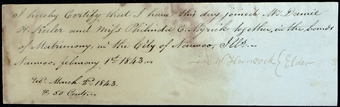 I hereby Certify that I have this day joined Mr. Daniel
H. Keeler and Miss Philinda C. Myrick together, in the bonds
of Matrimony, in the City of Nauvoo, Ills.
Nauvoo, february 1st 1843. L. W. Hancock Elder
March 2d 1843.
50 Cents